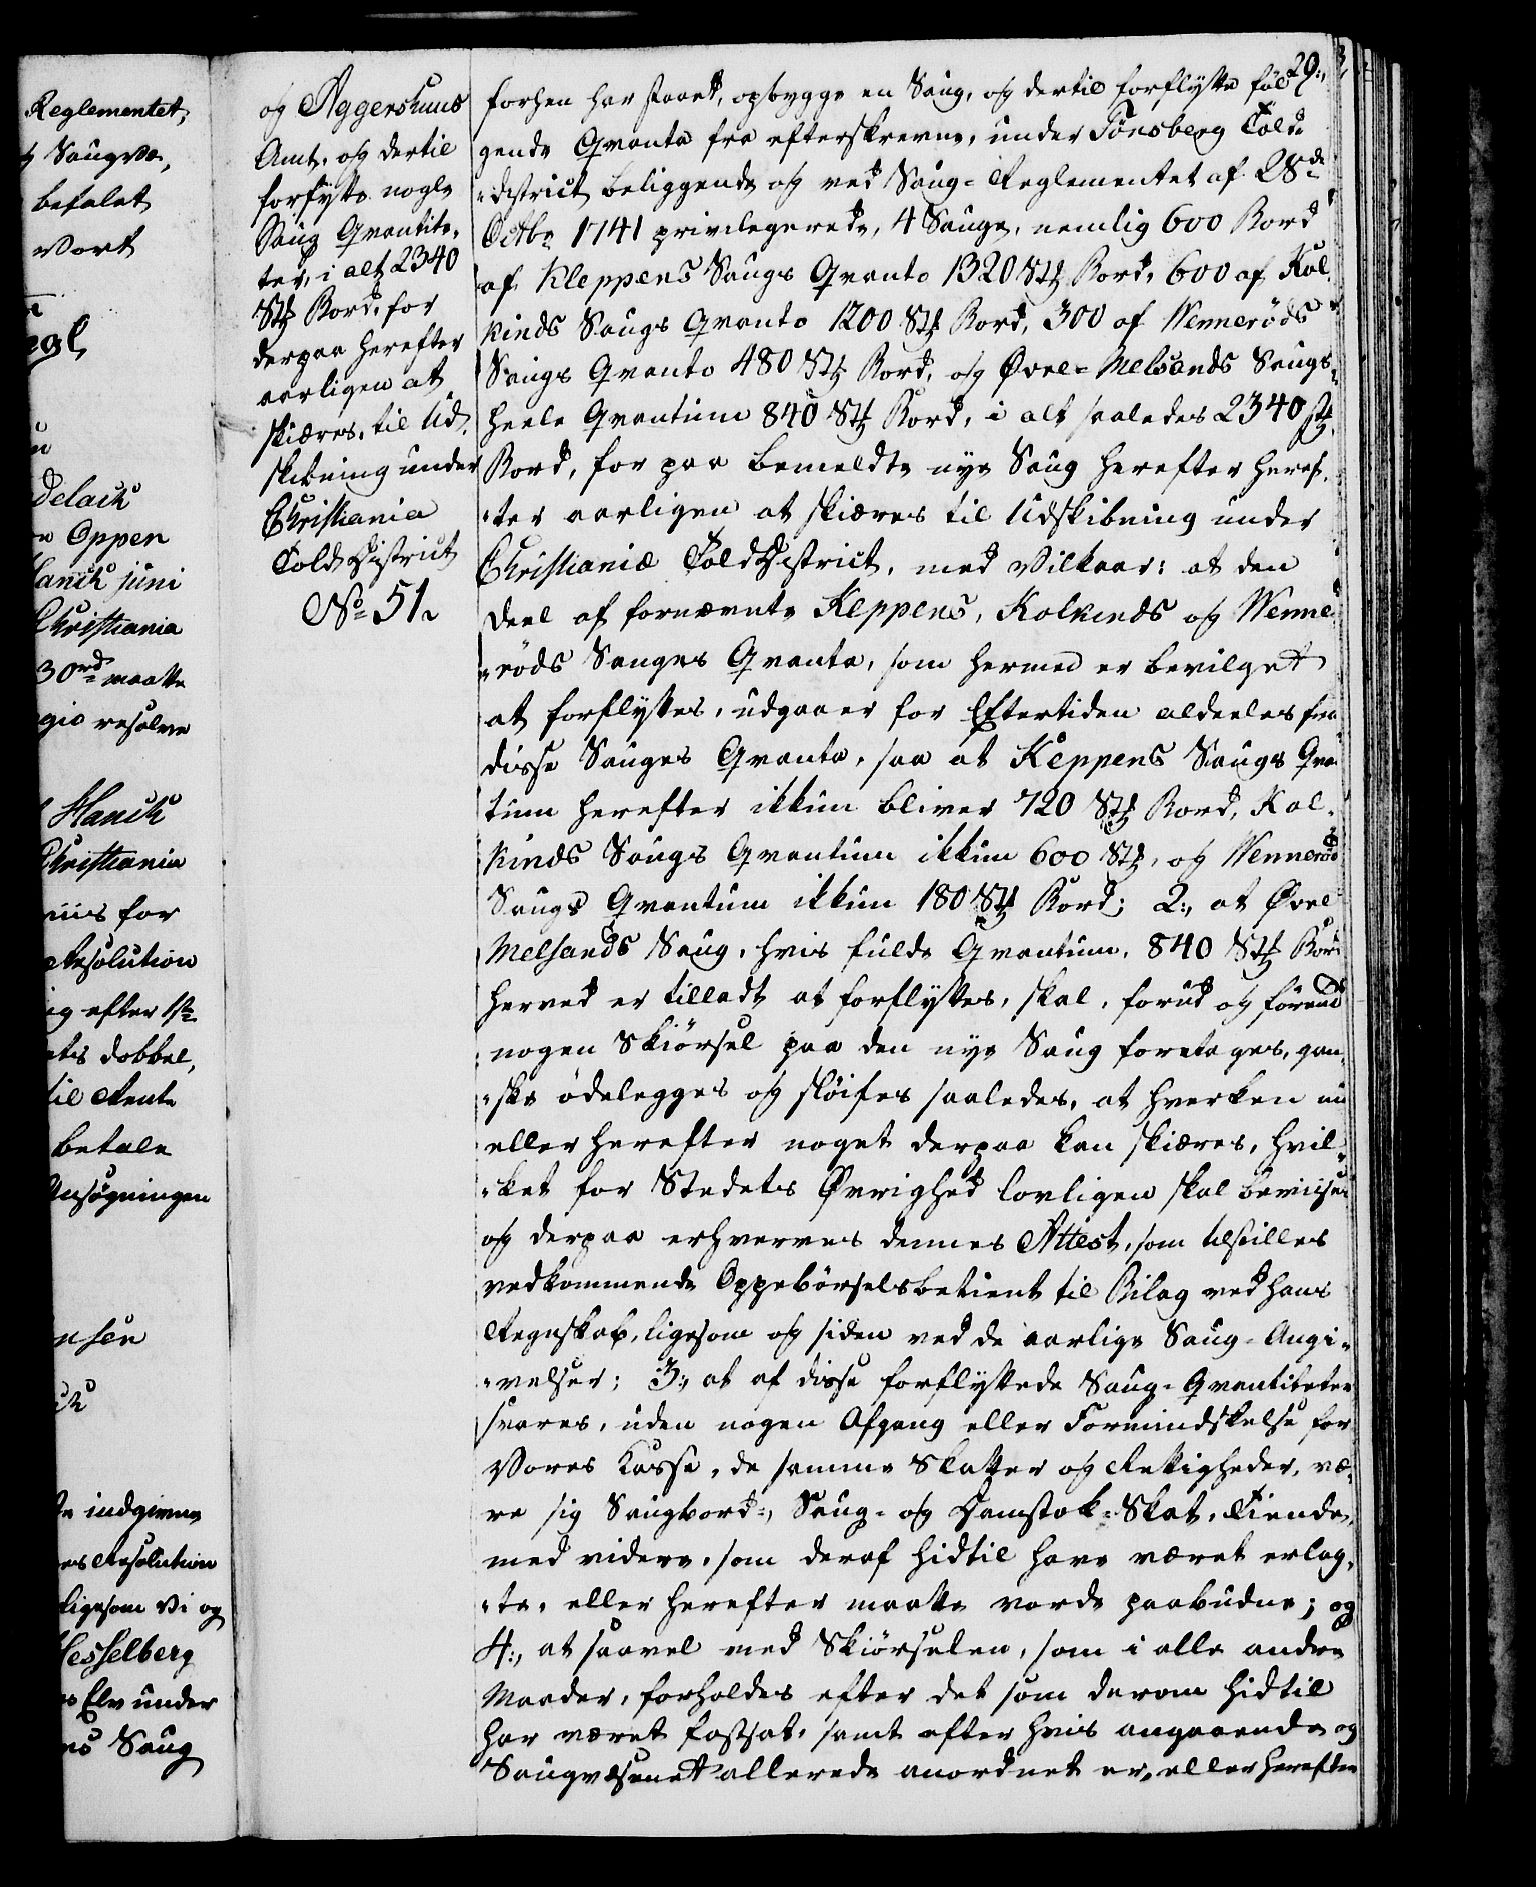 Reglementet,
Saugvæ,
befalet
Vort
delach
Oppen
Hanch juni
Christiania
30rd maatte
resolve
Hanch
Christiania
for
Resolution
efter 1ste
dobbel,
til Rente
betale
Ansøgningen
indgivne
Resolution
ligesom Vi og
Hesselberg
Elv under
Saug
og Aggershuus
Amt, og dertil
forflytte nogle
Saug Qvantite,
ter, i alt 2340
Stk Bord, for
derpaa herefter
aarligen at
skiæres, til Ud,
skibning under
Christiania
Told District
No 51.
29.
forhen har staaet, opbygge en Saug, og dertil forflytte føl
gende Qvanta fra efterskrevne, under Tønsberg Told
District beliggende og ved Saug-Reglementet af 28de
Octbr 1741 privilegerede, 4 Sauge, nemlig 600 Bord
af Kleppens Saugs Qvanto 1320 Stk Bord, 600 af Kol
kinds Saugs Qvanto 1200 Stk Bord, 300 af Wennerøds
Saugs Qvanto 480 Stk Bord, og Øvre-Melsands Saugs
heele Qvantum 840 Stk Bord, i alt saaledes 2340 Stk
Bord, for paa bemeldte nye Saug herefter heref,
ter aarligen at skiæres til Udskibning under
Christianiæ Told District, med Vilkaar: at den
Deel af fornævnte Keppens, Kolkinds og Wenne
røds Sauges Qvanta, som hermed er bevilget
at forflyttes, udgaaer for Eftertiden aldeeles fra
disse Sauges Qvanta, saa at Keppens Saugs Qvan
tum herefter ikkun bliver 720 Stk Bord, Kol-
kinds Saugs Qvantum ikkun 600 Stk, og Wennerød
Saugs Qvantum ikkun 180 Stk Bord; 2., at Øvre
Melsands Saug, hvis fulde Qvantum, 840 Stk Bord
herved er tilladt at forflyttes, skal, forud og førend
nogen Skiørsel paa den nye Saug foretages, gan,
ske ødelegges og sløifes saaledes, at hverken nu
eller herefter noget derpaa kan skiæres, hvil,
ket for Stedets Øvrighed lovligen skal beviises
og derpaa erhverves dennes Attest, som tilstilles
vedkommende Oppebørselsbetient til Bilag ved hans
Regnskab, ligesom og siden ved de aarlige Saug-Angi-
velser; 3., at af disse forflyttede Saug-Qvantiteter
svares, uden nogen Afgang eller Formindskelse for
Vores Kasse, de samme Skatter og Rettigheder, væ,
re sig Saugbord-, Saug- og Damstok-Skat, Tiende,
med videre, som deraf hidtil have været erlag,
te, eller herefter maatte vorde paabudne; og
4., at saavel med Skiørselen, som i alle andre
Maader, forholdes efter det som derom hidtil
har været fastsat, samt efter hvis angaaende og
Saugvæsenet allerede anordnet er, eller herefter